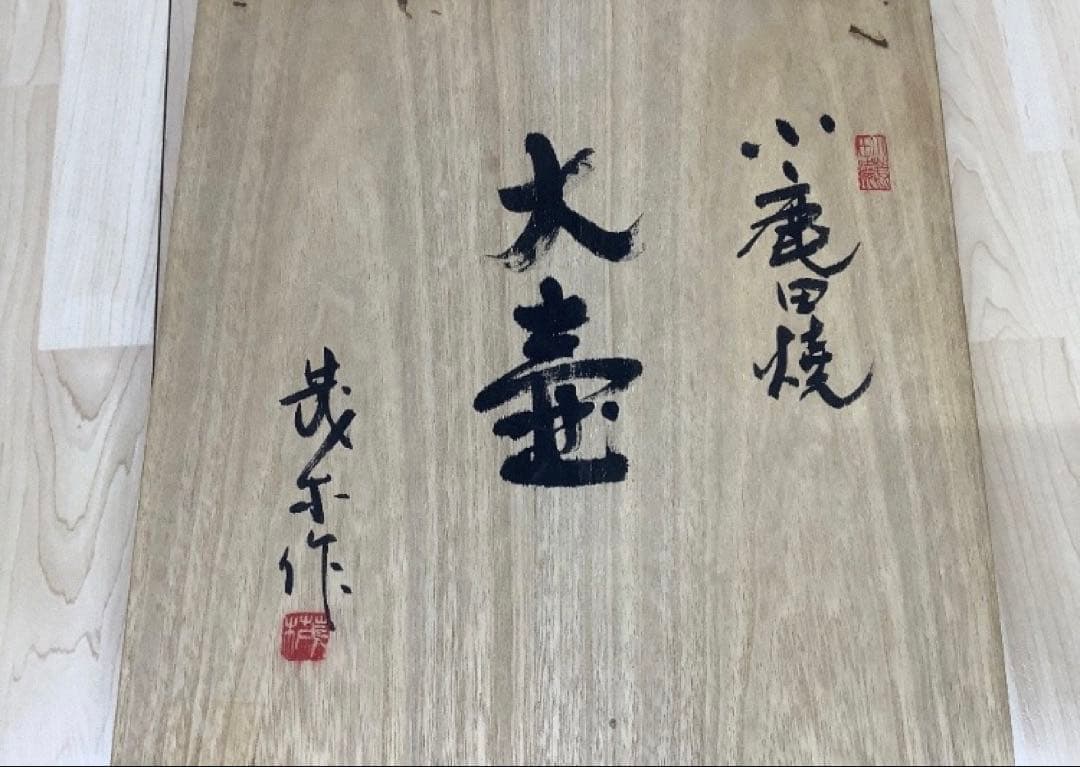 小鹿田焼
大壷
茂木作